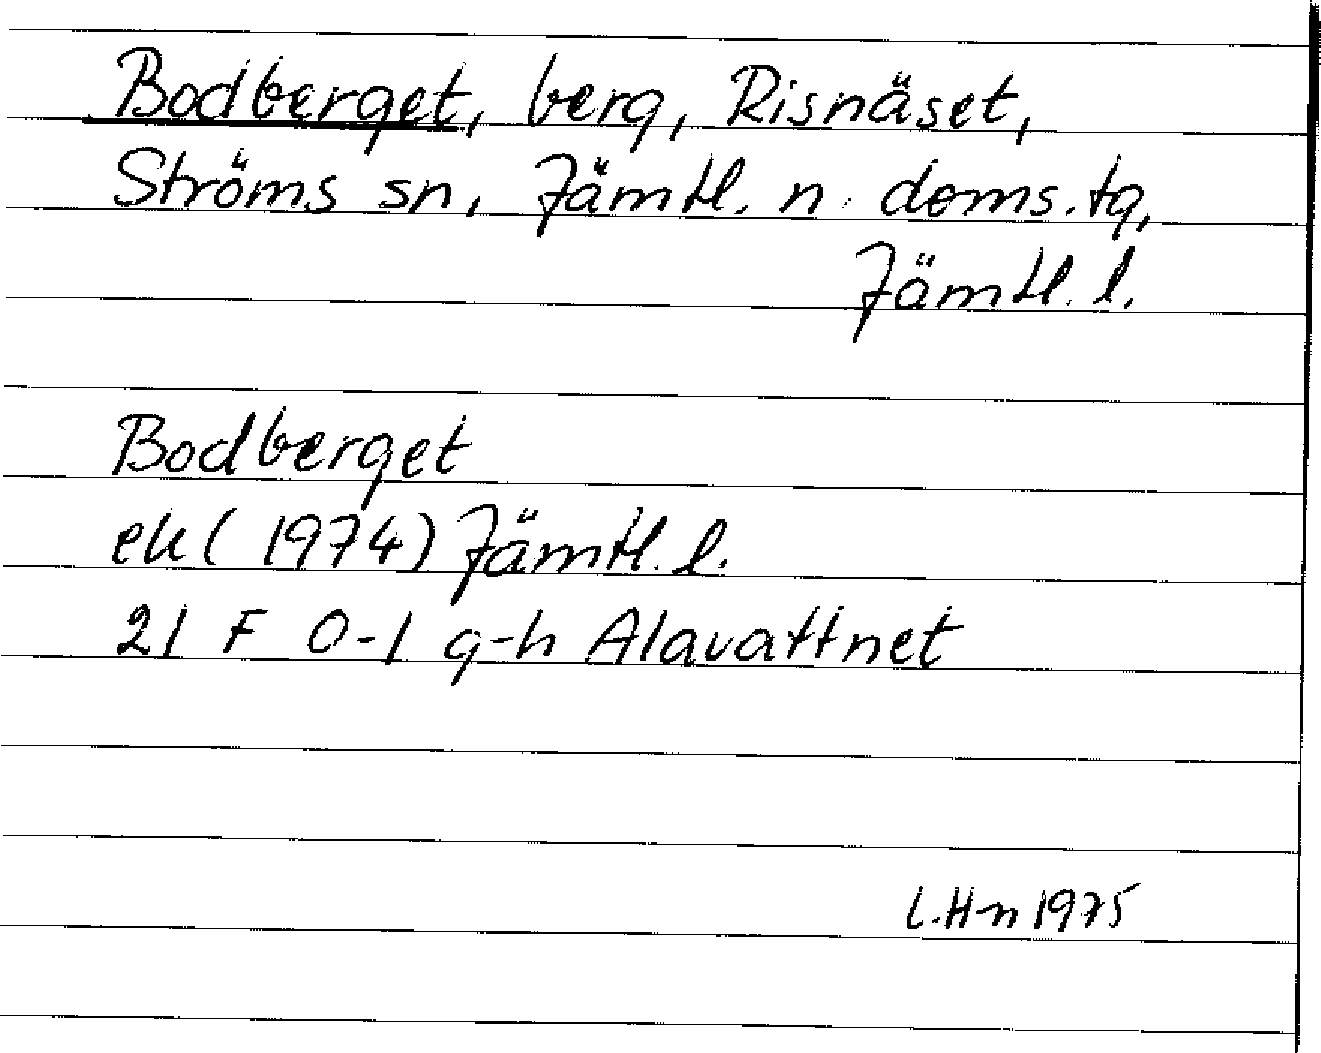 Bodberget, berg, Risnäset,
Ströms sn, Jämtl. n. doms.tg,
Jämtl. l.
Bodberget
ek (1974) Jämtl. l.
21 F 0-1 g-h Alavattnet
L.H-n 1975